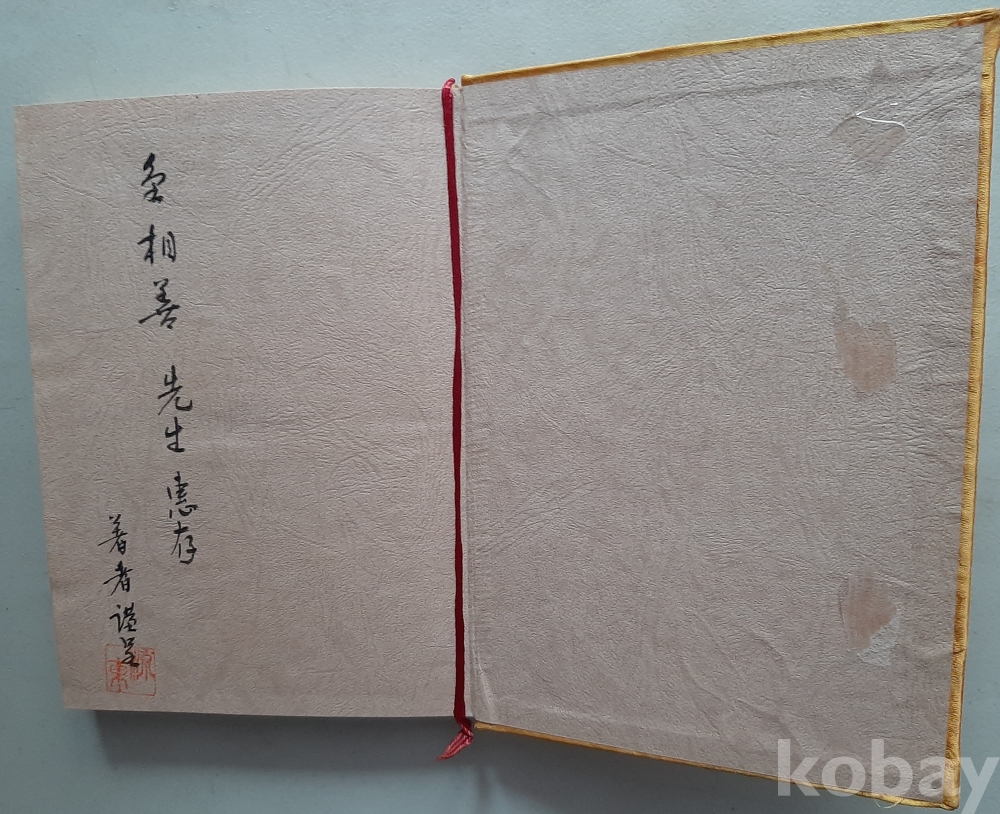 金相善 先生 惠存
著者 謹呈
kobay